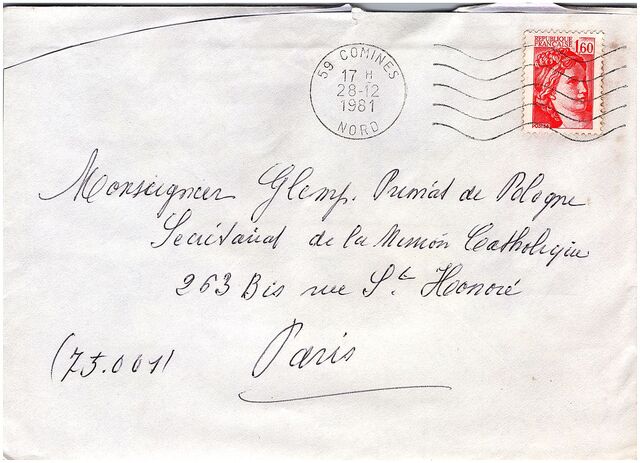 59 COMINES
17 H
28-12
1981
NORD
REPUBLIQUE
FRANÇAISE 1,60
Monseigneur Glemp. Primat de Pologne
Secrétariat de la Mission Catholique
263 Bis rue St Honoré
(75.001) Paris